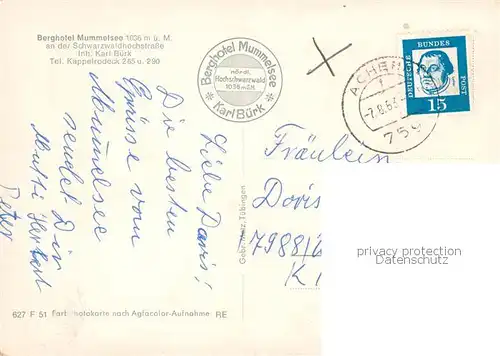 Berghotel Mummelsee 1036 m ü. M.
an der Schwarzwaldhochstraße
Inh. Karl Bürk
Tel. Kappelrodeck 265 u. 290
Berghotel Mummelsee
nördl.
Hochschwarzwald
1036 m ü.M.
Karl Bürk
DEUTSCHE BUNDES POST
15
ACHERN
-7.8.63
759
Liebe Doris!
Die besten
Grüsse vom
Mummelsee
sendet Dir
Mutti Herbert
Peter
Fräulein
Doris
7988
K
Gebr. Metz, Tübingen
privacy protection
datenschutz
627 F 51 Farbphotokarte nach Agfacolor-Aufnahme RE